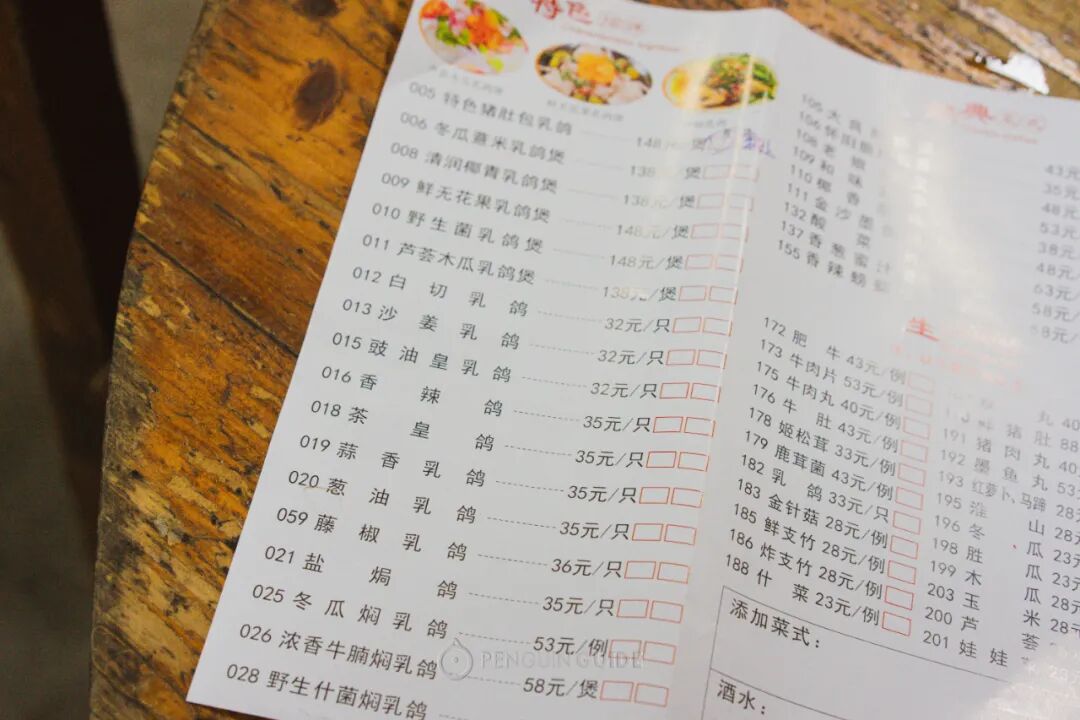 特色
005 特色猪肚包乳鸽 148元/煲
006 冬瓜薏米乳鸽煲 138元/煲
008 清润椰青乳鸽煲 138元/煲
009 鲜无花果乳鸽煲 148元/煲
010 野生菌乳鸽煲 148元/煲
011 芦荟木瓜乳鸽煲 138元/煲
012 白切乳鸽 32元/只
013 沙姜乳鸽 32元/只
015 豉油皇乳鸽 32元/只
016 香辣鸽 35元/只
018 茶皇鸽 35元/只
019 蒜香乳鸽 35元/只
020 葱油乳鸽 35元/只
059 藤椒乳鸽 36元/只
021 盐焗鸽 35元/只
025 冬瓜焖乳鸽 53元/例
026 浓香牛腩焖乳鸽 58元/煲
028 野生什菌焖乳鸽
典
105 大良
106
108 老
109 和味
110 椰香
111 金沙墨
132 酸菜
137 香葱蜜汁
155 香辣螃
43元
35元
48元
53元
38元
48元
63元/
58元/
58元/
生
172 肥牛 43元/例
173 牛肉片 53元/例
175 牛肉丸 40元/例
176 牛肚 43元/例
178 姬松茸 33元/例
179 鹿茸菌 43元/例
182 乳鸽 33元/只
183 金针菇 28元/例
185 鲜支竹 28元/例
186 炸支竹 28元/例
188 什菜 23元/例
丸 40
猪肚 88
191 猪肉丸 40
192 墨鱼丸 53元
193 红萝卜、马蹄 28元
195 淮山 28元
196 冬瓜 23元
198 胜瓜 23元
199 木瓜 28元
203 玉米 28元
200 芦荟
201 娃娃
添加菜式：
酒水：
PENGUIN GUIDE